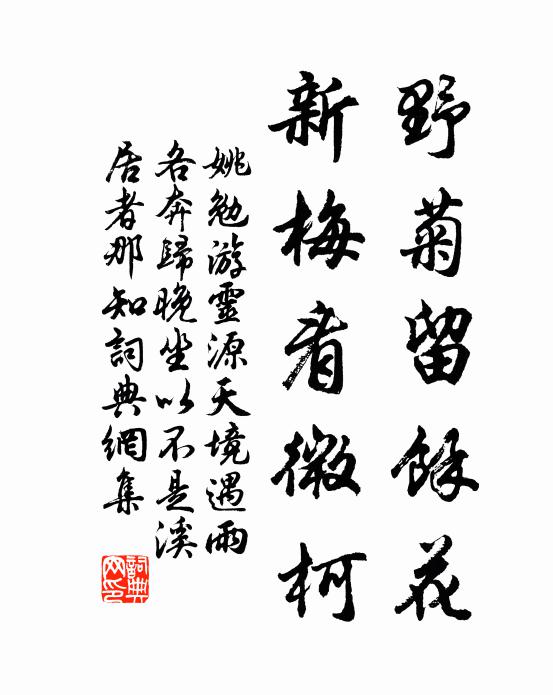 野菊留餘花
新梅看微柯
姚勉游靈源天境遇雨
各奔歸晚坐以不是溪
居者那知詞典網集
詞典网印